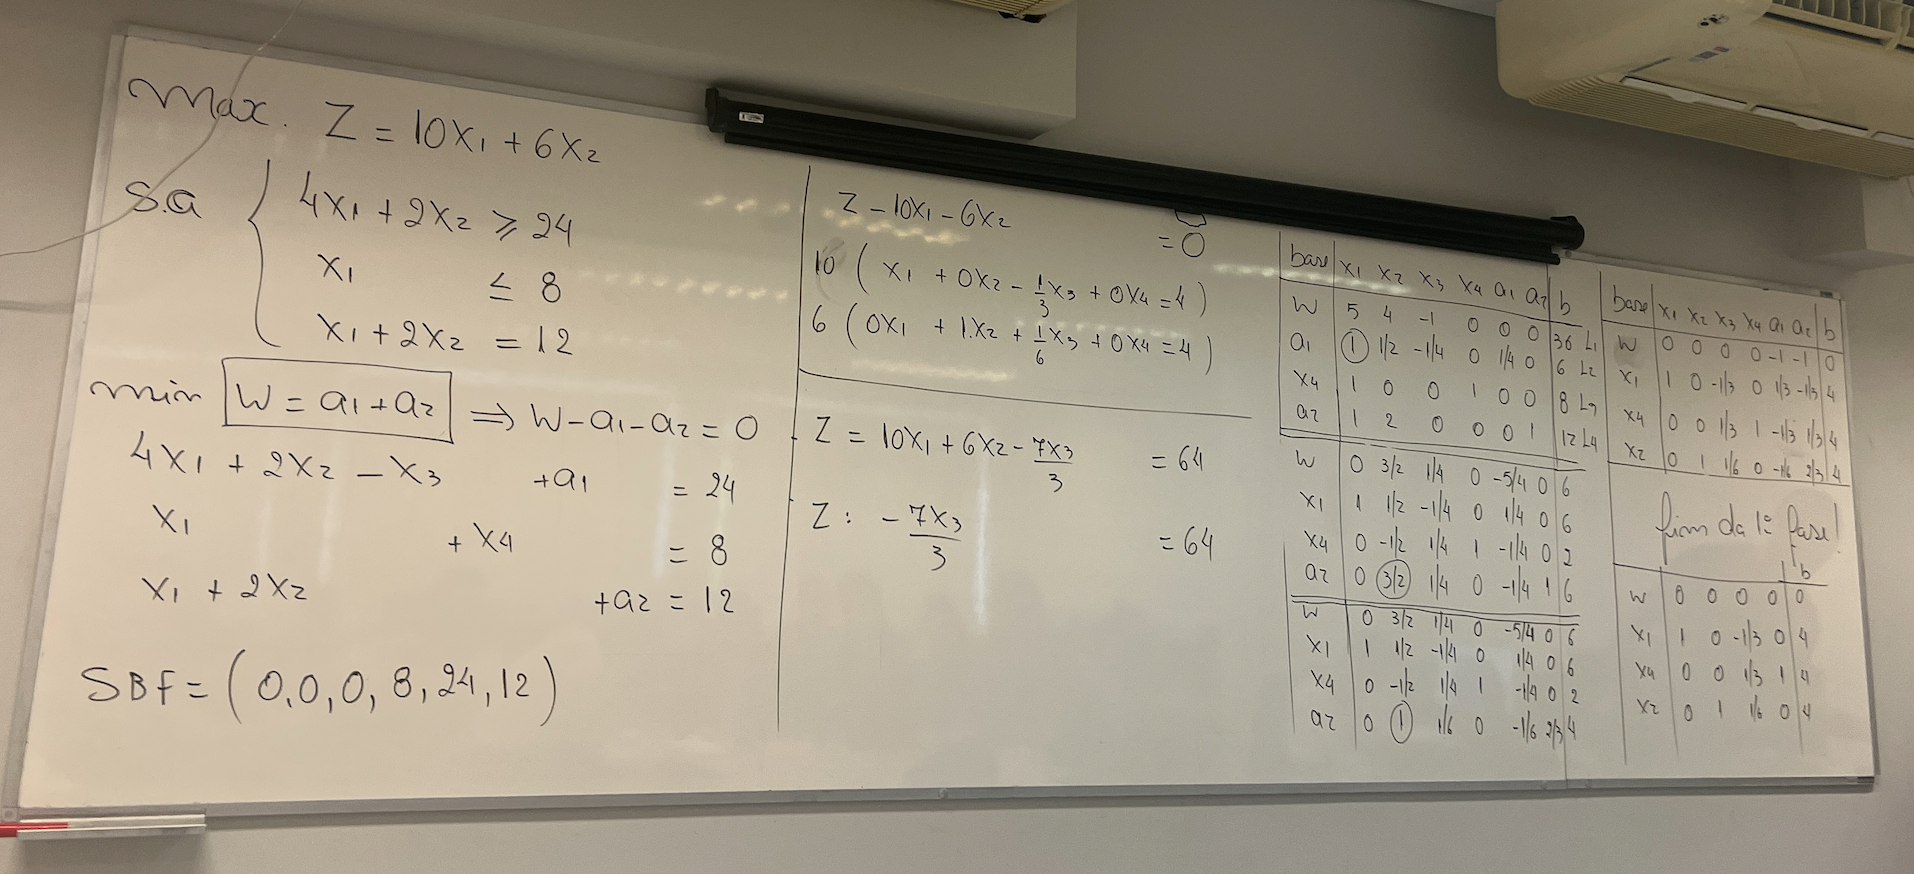 Max. Z = 10x1 + 6x2
S.a
4x1 + 2x2 ≥ 24
x1 ≤ 8
x1 + 2x2 = 12
min W = a1 + a2 ⇒ W - a1 - a2 = 0
4x1 + 2x2 - x3 + a1 = 24
x1 + x4 = 8
x1 + 2x2 + a2 = 12
SBF = (0,0,0,8,24,12)
Z - 10x1 - 6x2 = 0
10 (x1 + 0x2 - 1/3 x3 + 0x4 = 4)
6 (0x1 + 1.x2 + 1/6 x3 + 0x4 = 4)
Z = 10x1 + 6x2 - 7x3/3 = 64
Z : - 7x3/3 = 64
base x1 x2 x3 x4 a1 a2 b
W 5 4 -1 0 0 0 36 L1
a1 1 1/2 -1/4 0 1/4 0 6 L2
x4 1 0 0 1 0 0 8 L3
a2 1 2 0 0 0 1 12 L4
W 0 3/2 1/4 0 -5/4 0 6
x1 1 1/2 -1/4 0 1/4 0 6
x4 0 -1/2 1/4 1 -1/4 0 2
a2 0 3/2 1/4 0 -1/4 1 6
W 0 3/2 1/4 0 -5/4 0 6
x1 1 1/2 -1/4 0 1/4 0 6
x4 0 -1/2 1/4 1 -1/4 0 2
a2 0 1 1/6 0 -1/6 2/3 4
base x1 x2 x3 x4 a1 a2 b
W 0 0 0 0 -1 -1 0
x1 1 0 -1/3 0 1/3 -1/3 4
x4 0 0 1/3 1 -1/3 1/3 4
x2 0 1 1/6 0 -1/6 2/3 4
fim da 1ª fase!
b
W 0 0 0 0 0
x1 1 0 -1/3 0 4
x4 0 0 1/3 1 4
x2 0 1 1/6 0 4